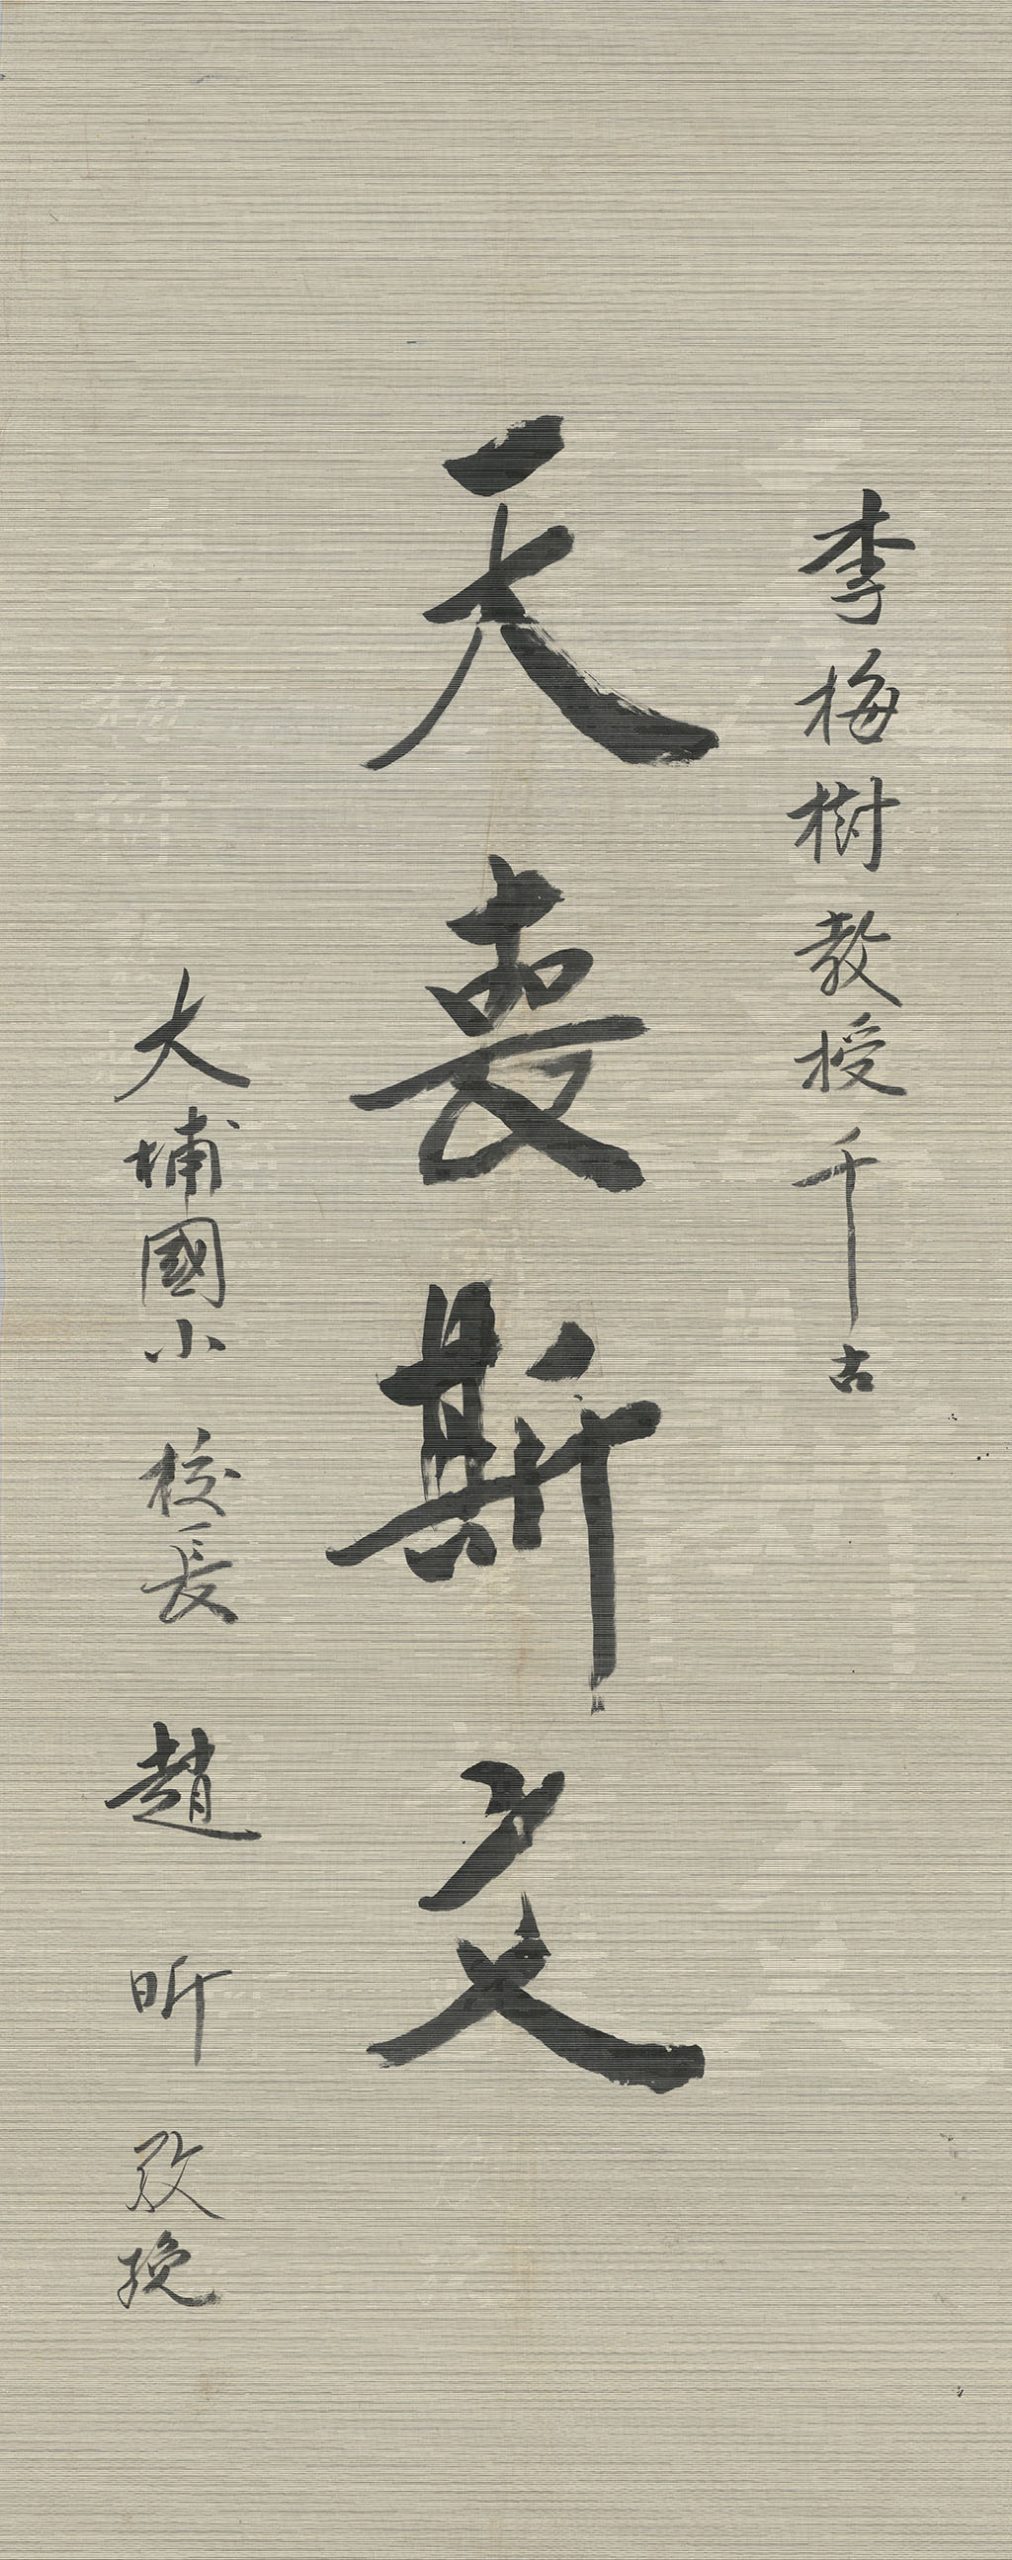 李梅樹教授千古
天喪斯文
大埔國小 校長 趙 昕 敬挽